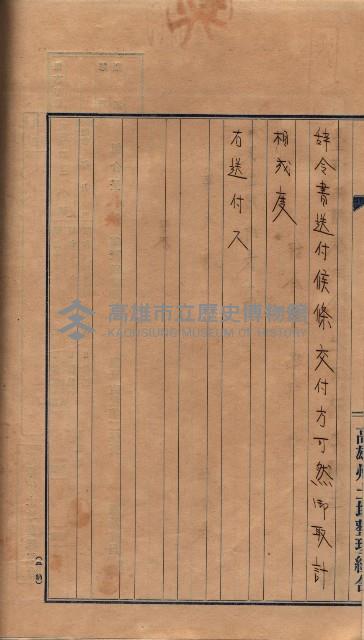 辞令書送付候條交付方可然御取計
相成度
右送付ス
高雄市立歷史博物館
KAOHSIUNG MUSEUM OF HISTORY
高雄州
整理組合